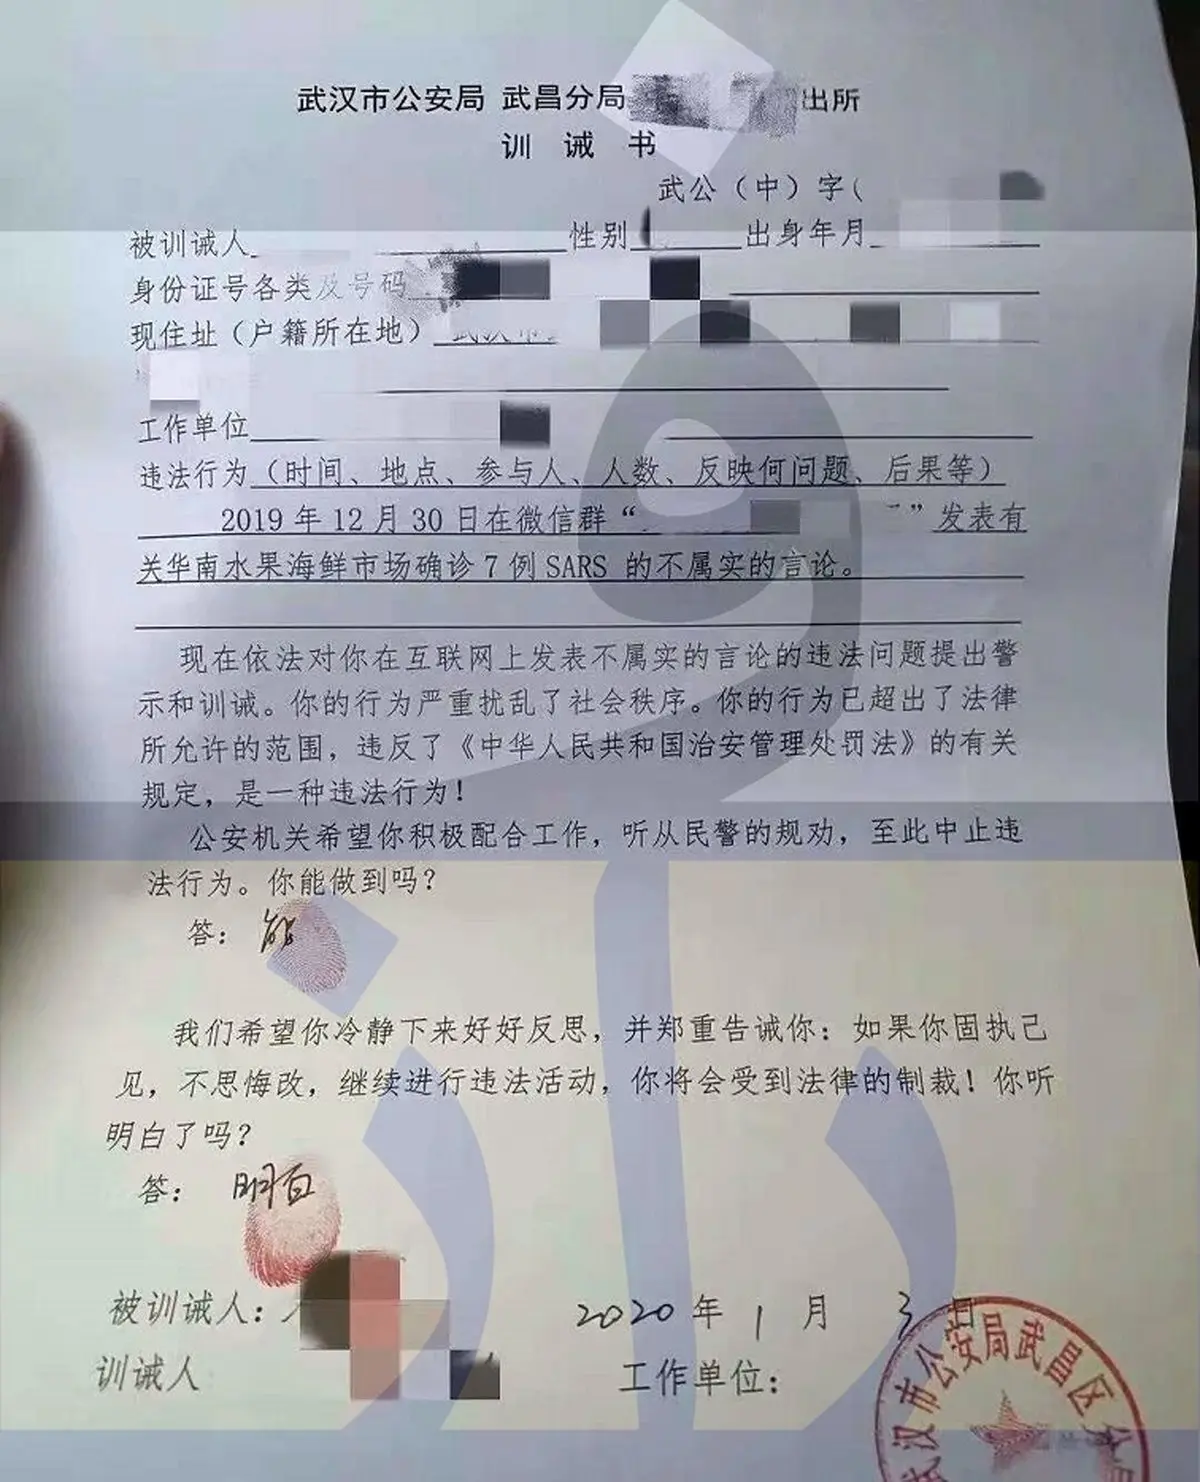 武汉市公安局 武昌分局 出所
训 诫 书
武公（中）字（
被训诫人 性别 出身年月
身份证号各类及号码
现住址（户籍所在地） 武汉市
工作单位
违法行为（时间、地点、参与人、人数、反映何问题、后果等）
2019 年 12 月 30 日在微信群“ ”发表有
关华南水果海鲜市场确诊 7 例 SARS 的不属实的言论。
现在依法对你在互联网上发表不属实的言论的违法问题提出警
示和训诫。你的行为严重扰乱了社会秩序。你的行为已超出了法律
所允许的范围，违反了《中华人民共和国治安管理处罚法》的有关
规定，是一种违法行为！
公安机关希望你积极配合工作，听从民警的规劝，至此中止违
法行为。你能做到吗？
答： 能
我们希望你冷静下来好好反思，并郑重告诫你：如果你固执己
见，不思悔改，继续进行违法活动，你将会受到法律的制裁！你听
明白了吗？
答： 明白
被训诫人： 2020 年 1 月 3 日
训诫人 工作单位：
武汉市公安局武昌区分局